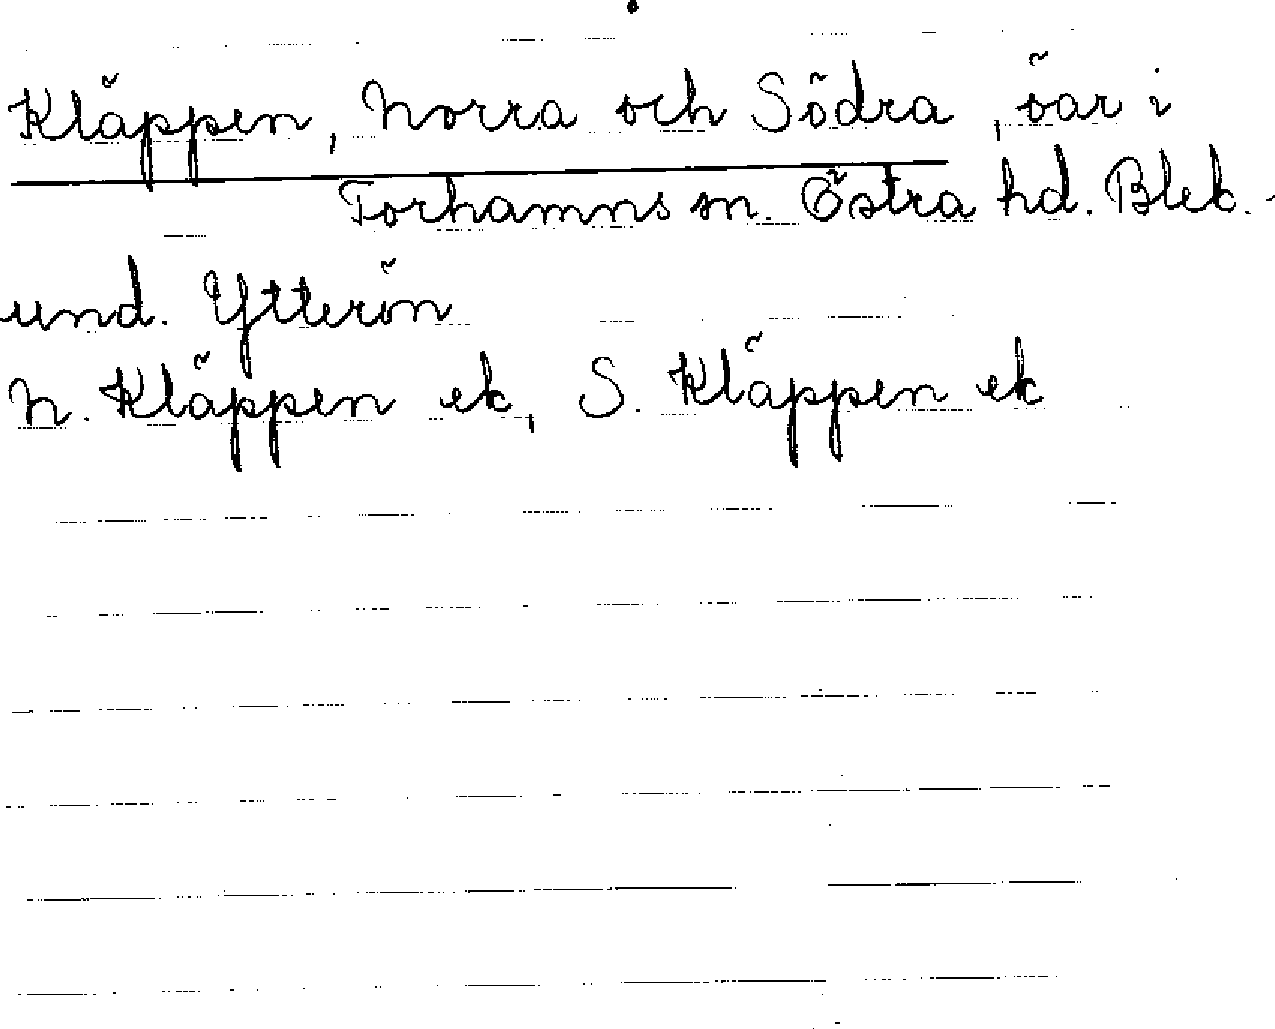 Kläppen, Norra och Södra, öar i
Torhamns sn. Östra hd. Blek.
und. Ytterön
N. Kläppen ek, S. Kläppen ek